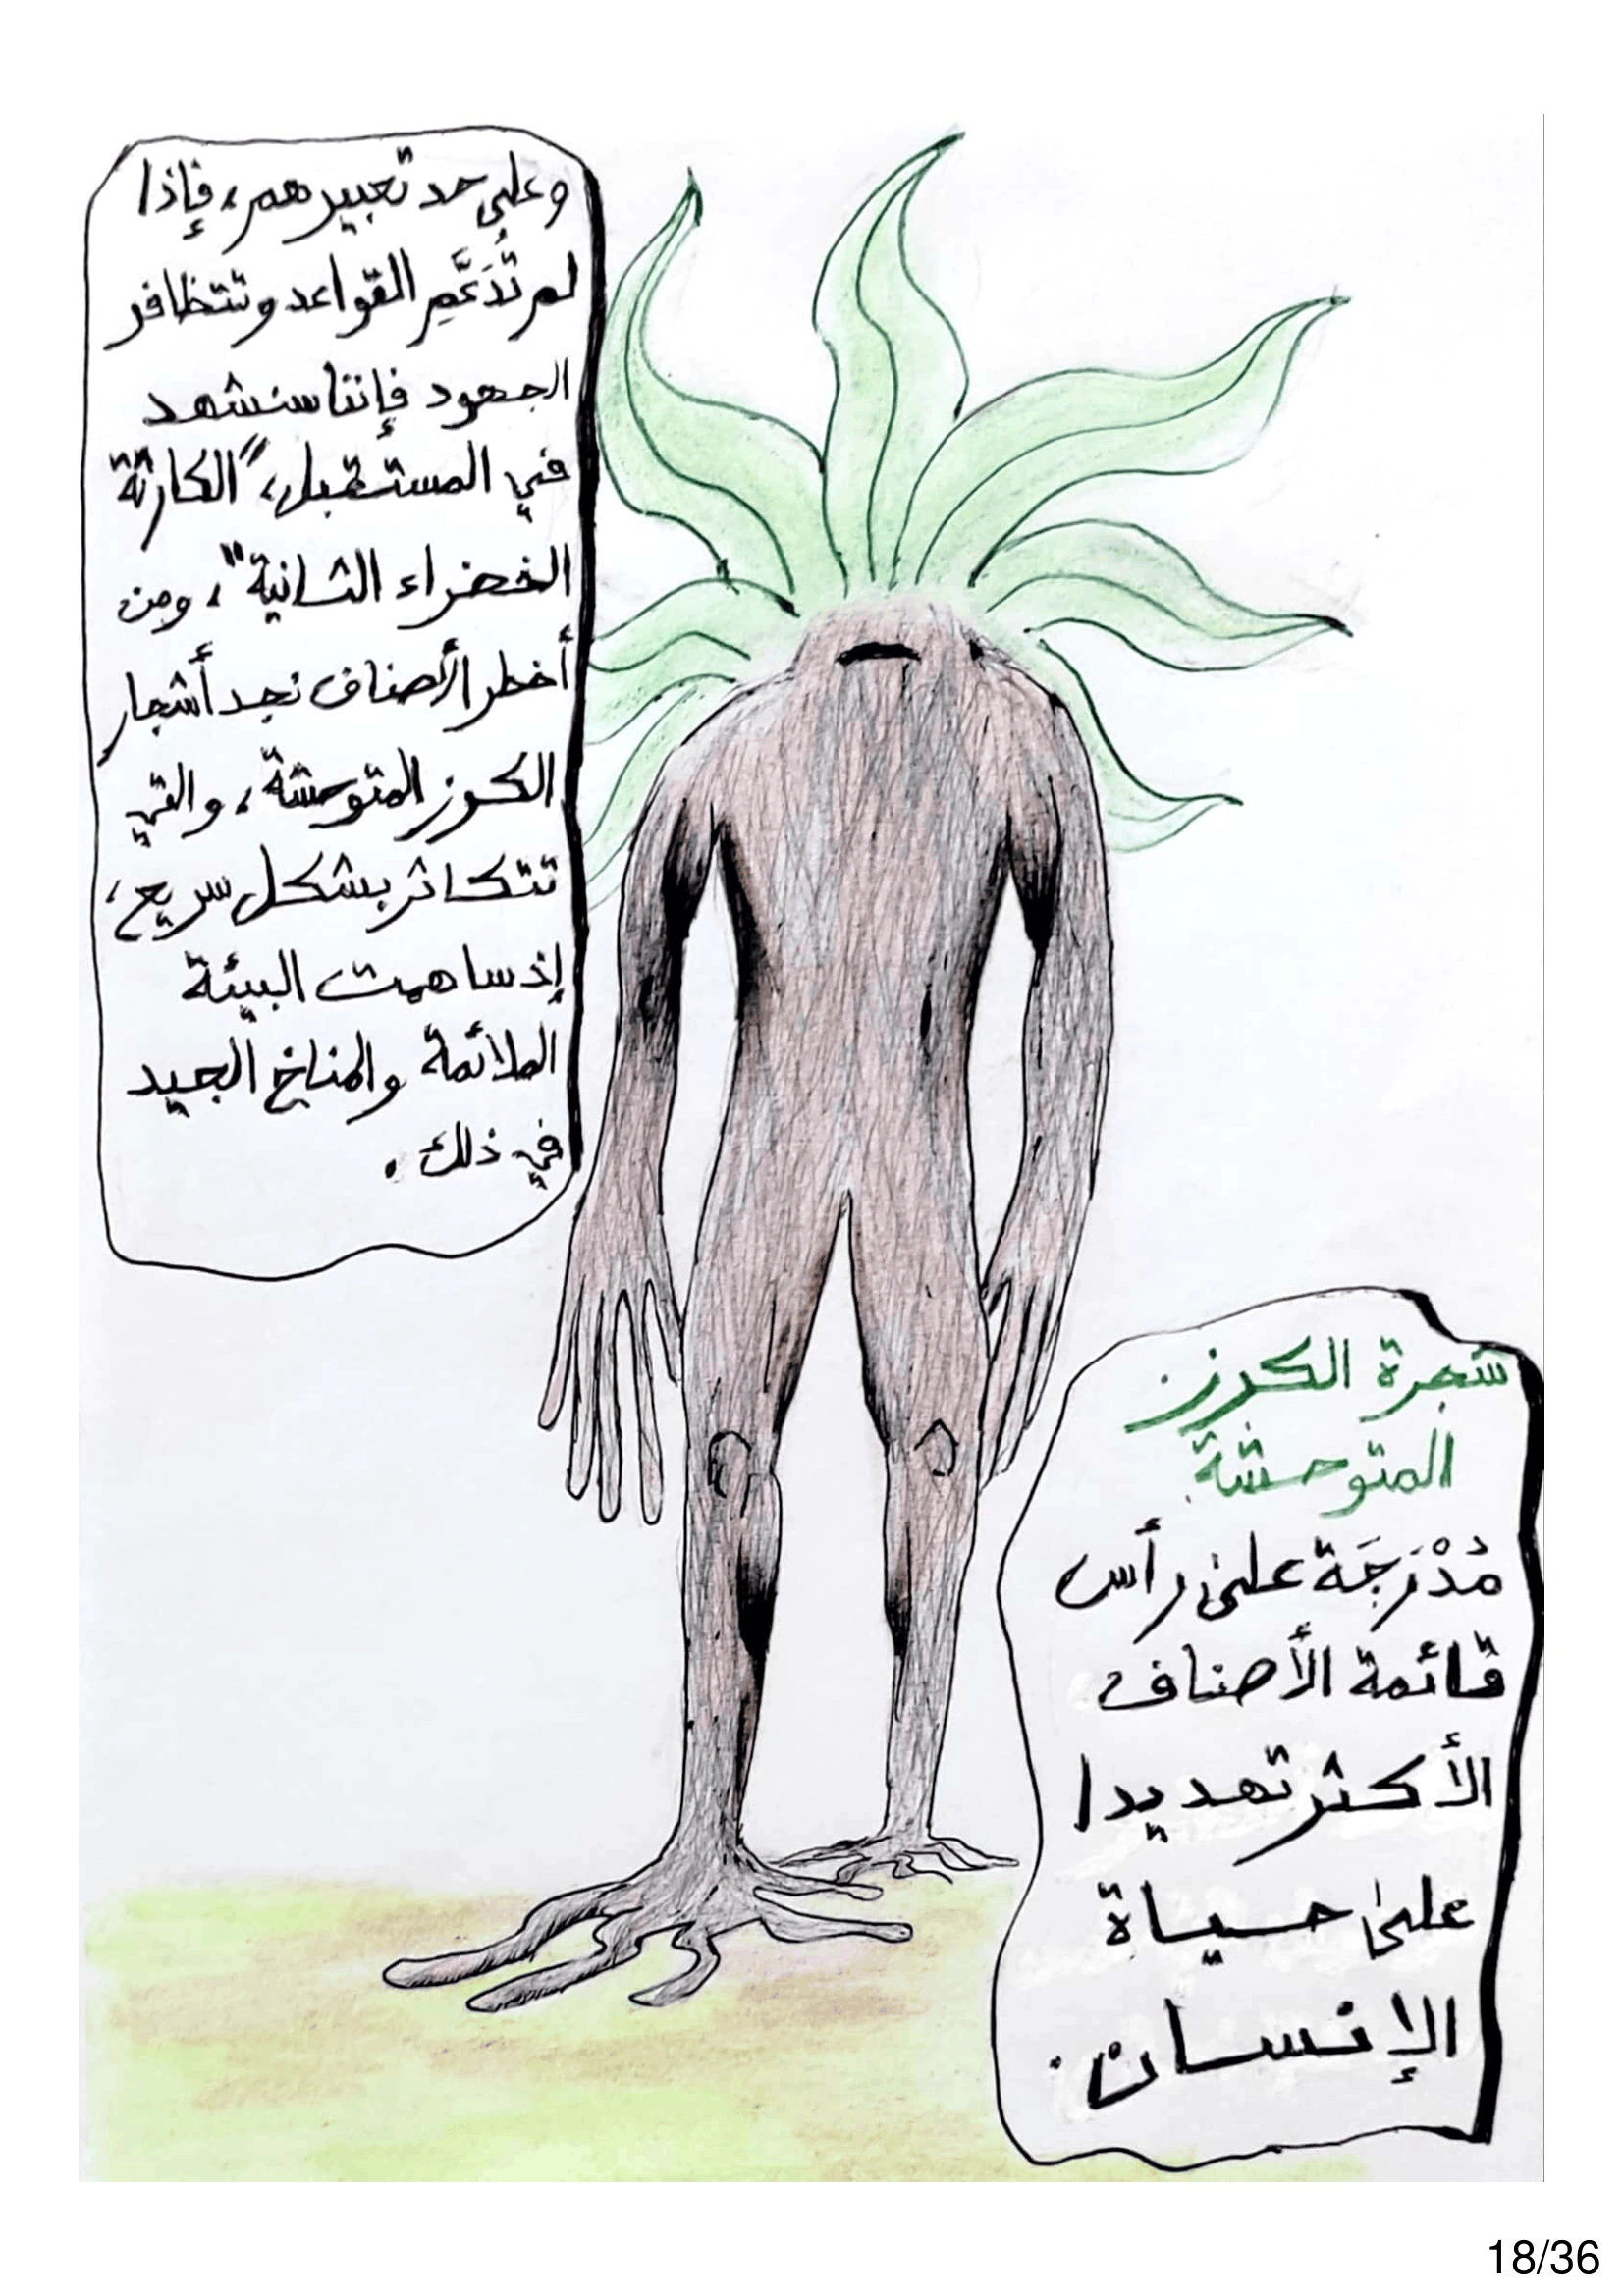 وعلى حد تعبيرهم، فإذا
لم تُدَعَّمِ القواعد وتتظافر
الجهود فإننا سنشهد
في المستقبل، "الكارثة
الخضراء الثانية"، ومن
أخطر الأصناف نجد أشجار
الكرز المتوحشة، والتي
تتكاثر بشكل سريع،
إذ ساهمت البيئة
الملائمة والمناخ الجيد
في ذلك.
شجرة الكرز
المتوحشة
مُدْرَجَة على رأس
قائمة الأصناف
الأكثر تهديدا
على حياة
الإنسان.
18/36